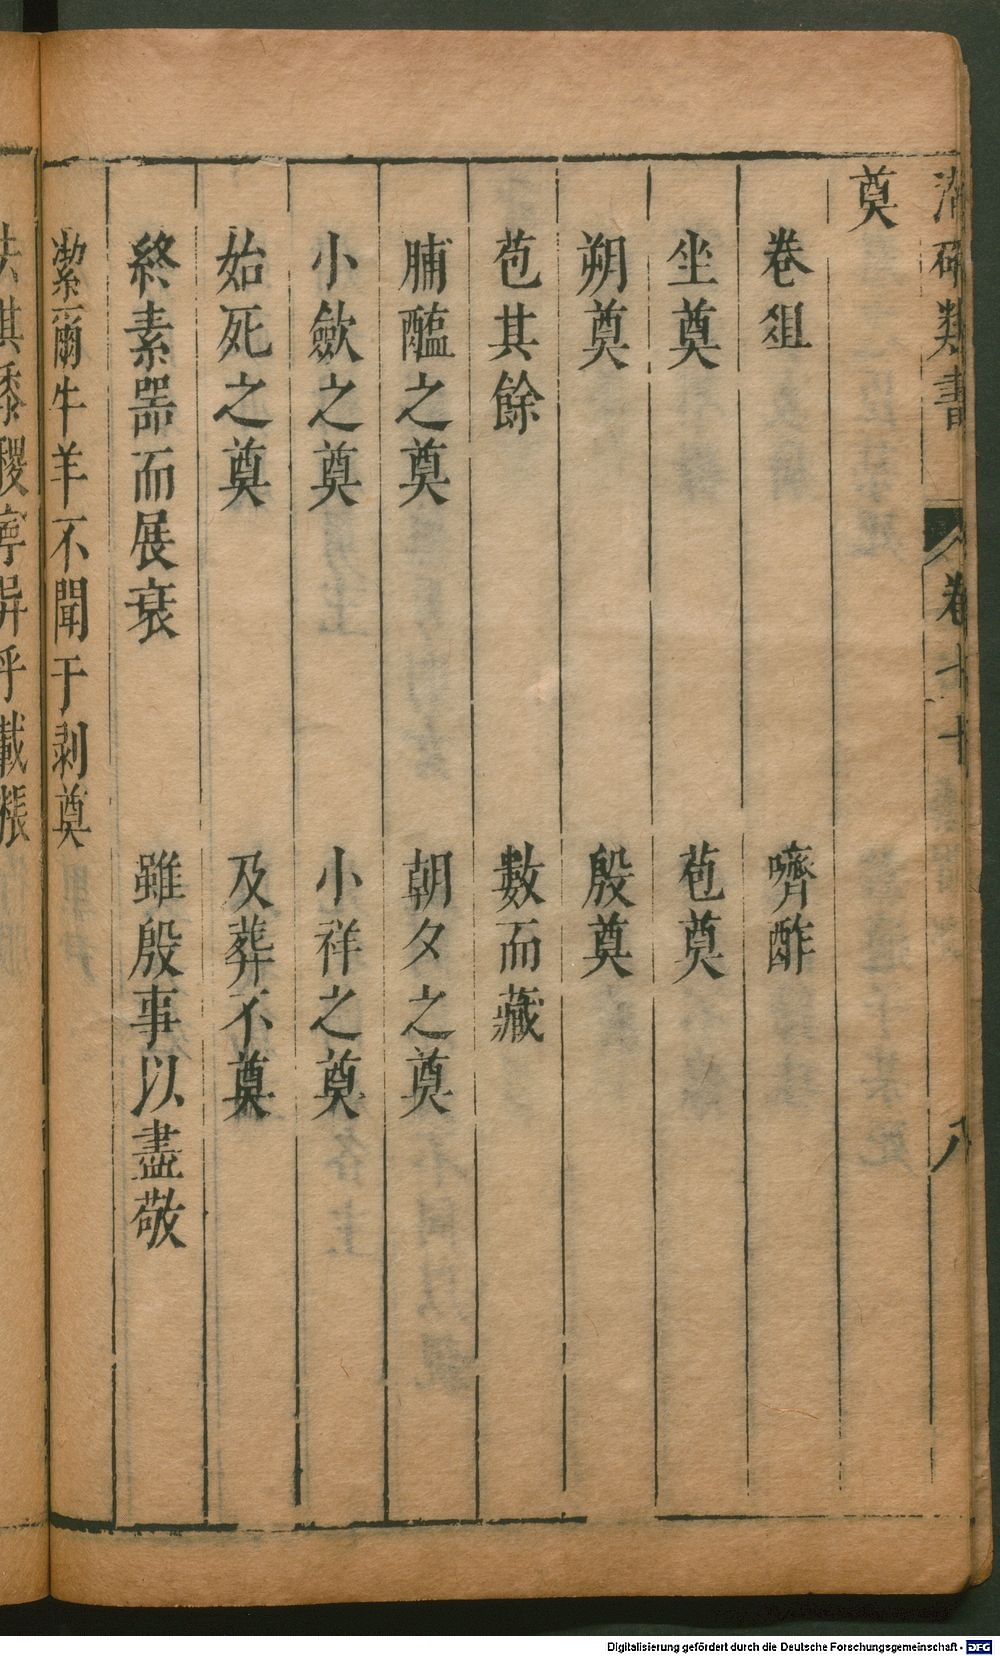 類書 卷七十 八
奠
卷俎 嚌酢
坐奠 苞奠
朔奠 殷奠
苞其餘 數而藏
脯醢之奠 朝夕之奠
小歛之奠 小祥之奠
始死之奠 及葬不奠
終素噐而展衰 雖殷事以盡敬
潔爾牛羊不聞于剥奠
黍稷 乎載
Digitalisierung gefördert durch die Deutsche Forschungsgemeinschaft - DFG